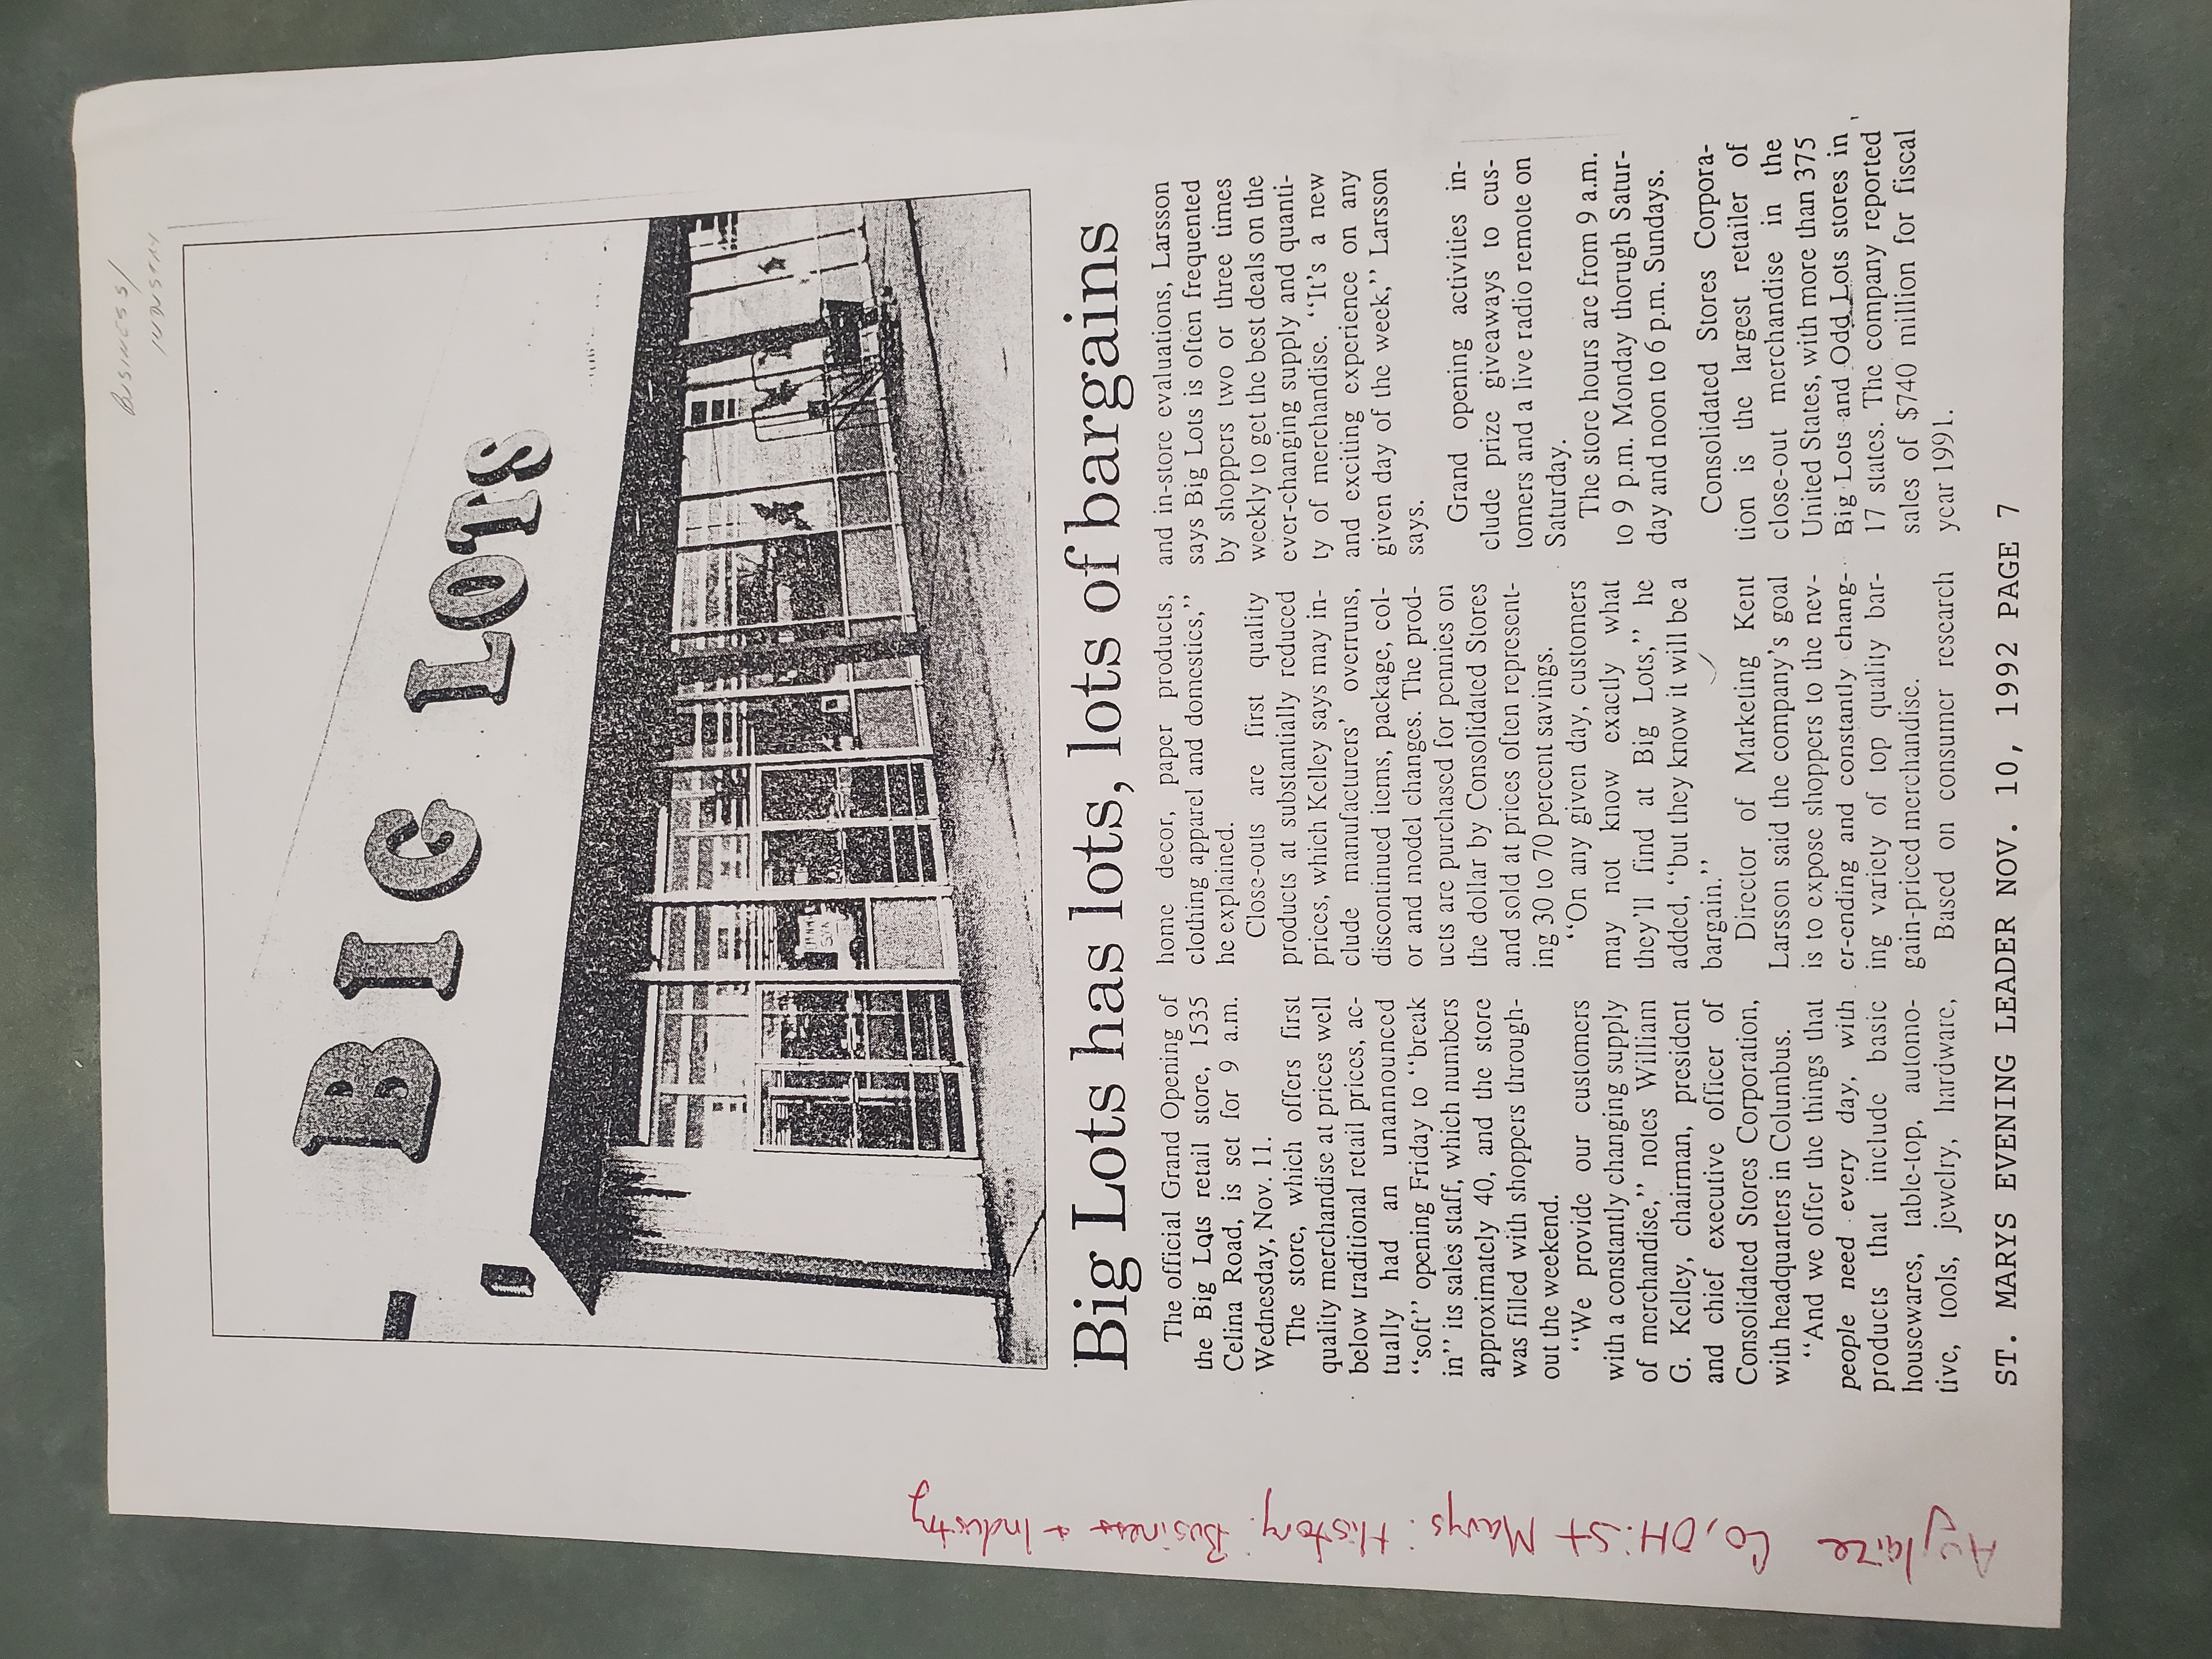 BUSINESS/
INDUSTRY
BIG LOTS
Big Lots has lots, lots of bargains
The official Grand Opening of
the Big Lots retail store, 1535
Celina Road, is set for 9 a.m.
Wednesday, Nov. 11.
The store, which offers first
quality merchandise at prices well
below traditional retail prices, ac-
tually had an unannounced
“soft” opening Friday to “break
in” its sales staff, which numbers
approximately 40, and the store
was filled with shoppers through-
out the weekend.
“We provide our customers
with a constantly changing supply
of merchandise,” notes William
G. Kelley, chairman, president
and chief executive officer of
Consolidated Stores Corporation,
with headquarters in Columbus.
“And we offer the things that
people need every day, with
products that include basic
housewares, table-top, automo-
tive, tools, jewelry, hardware,
home decor, paper products,
clothing apparel and domestics,”
he explained.
Close-outs are first quality
products at substantially reduced
prices, which Kelley says may in-
clude manufacturers’ overruns,
discontinued items, package, col-
or and model changes. The prod-
ucts are purchased for pennies on
the dollar by Consolidated Stores
and sold at prices often represent-
ing 30 to 70 percent savings.
“On any given day, customers
may not know exactly what
they’ll find at Big Lots,” he
added, “but they know it will be a
bargain.”
Director of Marketing Kent
Larsson said the company’s goal
is to expose shoppers to the nev-
er-ending and constantly chang-
ing variety of top quality bar-
gain-priced merchandise.
Based on consumer research
and in-store evaluations, Larsson
says Big Lots is often frequented
by shoppers two or three times
weekly to get the best deals on the
ever-changing supply and quanti-
ty of merchandise. “It’s a new
and exciting experience on any
given day of the week,” Larsson
says.
Grand opening activities in-
clude prize giveaways to cus-
tomers and a live radio remote on
Saturday.
The store hours are from 9 a.m.
to 9 p.m. Monday thorugh Satur-
day and noon to 6 p.m. Sundays.
Consolidated Stores Corpora-
tion is the largest retailer of
close-out merchandise in the
United States, with more than 375
Big Lots and Odd Lots stores in
17 states. The company reported
sales of $740 million for fiscal
year 1991.
ST. MARYS EVENING LEADER NOV. 10, 1992 PAGE 7
Auglaize Co, OH: St Marys: History: Business + Industry